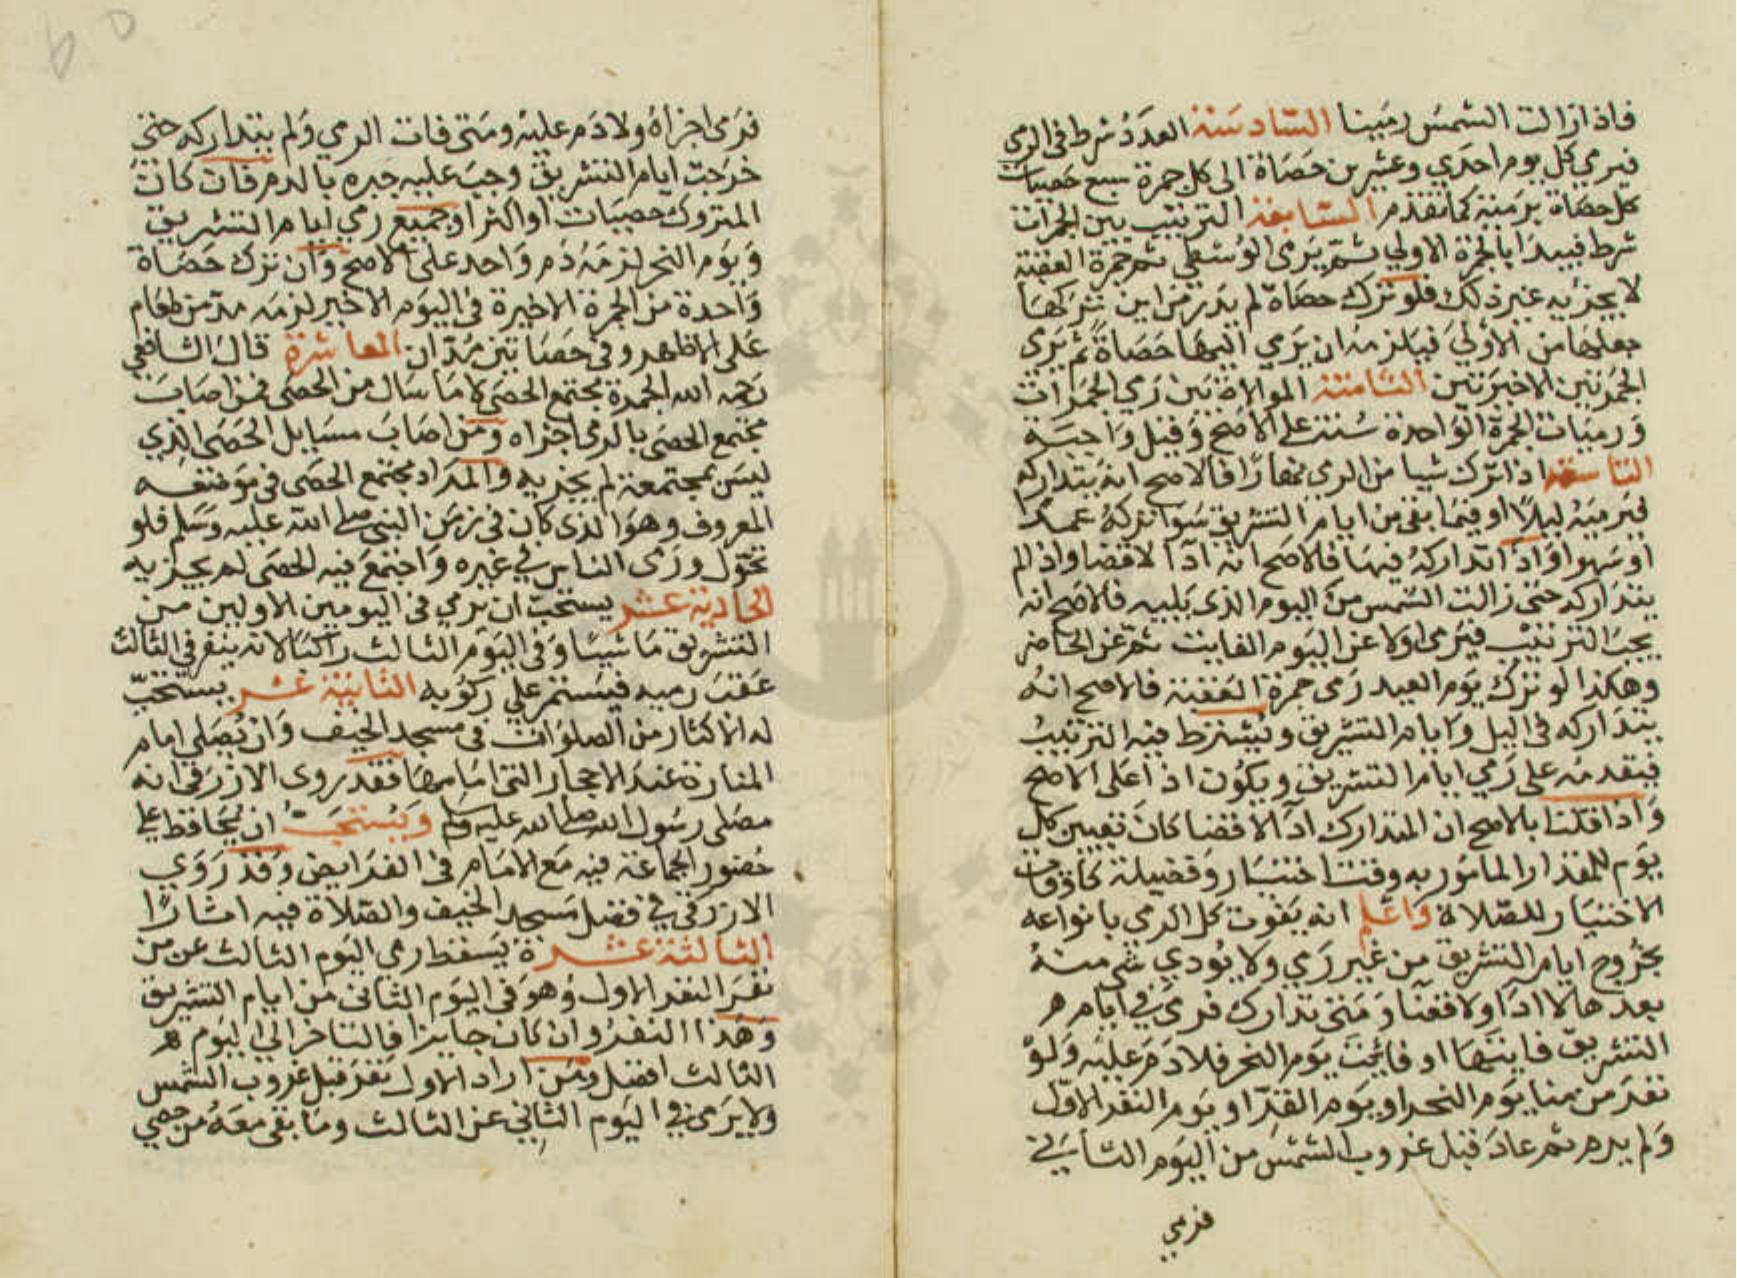 فاذا زالت الشمس رمينا السادسة العدد شرط في الرمي
فيرمي كل يوم احدي وعشرين حصاة الى كل جمرة سبع حصيات
كل حصاة برمية كما تقدم السابعة الترتيب بين الجمرات
شرط فيبدا بالجمرة الاولي ثم يرمى الوسطى ثم جمرة العقبة
لا يجزيه غير ذلك فلو ترك حصاة لم يدر من اين تركها
جعلها من الأولي فيلزمه ان يرمي اليها حصاة ثم يرمى
الجمرتين الاخيرتين الثامنة الموالاة بين رمي الجمرات
ورميات الجمرة الواحدة سنة على الاصح وقيل واجبة
التاسعة اذا ترك شيا من الرمي نهارا فالاصح انه يتداركه
فيرميه ليلا او فيما بقى من ايام التشريق سوا تركه عمدا
او سهوا واذا تداركه فيها فالاصح انه ادآ لا قضا واذا لم
يتداركه حتى زالت الشمس من اليوم الذي يليه فالاصح انه
يجب الترتيب فيرمى اولا عن اليوم الفايت ثم عن الحاضر
وهكذا لو ترك يوم العيد رمى جمرة العقبة فالاصح انه
يتداركه في اليل وايام التشريق ويشترط فيه الترتيب
فيقدمه على رمي ايام التشريق ويكون اداً على الاصح
واذا قلنا بالاصح ان المتدارك ادآ لا قضا كان تعيين كل
يوم للمقدار المامور به وقت اختيار وفضيلة كاوقات
الاختيار للصلاة واعلم انه يفوت كل الرمي بانواعه
بخروج ايام التشريق من غير رمي ولا يودي شي منه
بعدها لا ادآ ولا قضآ ومتى تدارك فرمى في ايام
التشريق فايتها او فايت يوم النحر فلا دم عليه ولو
نفر من منا يوم النحر او يوم القر او يوم النفر الاول
ولم يرم ثم عاد قبل غروب الشمس من اليوم الثاني
فرمي
فرمى اجزاه ولا دم عليه ومتى فات الرمي ولم يتداركه حتى
خرجت ايام التشريق وجب عليه جبره بالدم فان كان
المتروك حصيات او اكثر او جميع رمي ايام التشريق
ويوم النحر لزمه دم واحد على الاصح وان ترك حصاة
واحدة من الجمرة الاخيرة في اليوم الاخير لزمه مد من طعام
على الاظهر وفي حصاتين مدان العاشرة قال الشافعي
رحمه الله الجمرة مجتمع الحصى لا ما سال من الحصى فمن اصاب
مجتمع الحصى بالرمي اجزاه ومن اصاب مسايل الحصى الذي
ليس بمجتمعة لم يجزيه والمراد مجتمع الحصى في موقفه
المعروف وهو الذي كان في زمن النبي صلى الله عليه وسلم فلو
تحول ورمى الناس في غيره واجتمع فيه الحصى لم يجزيه
الحادية عشر يستحب ان يرمي في اليومين الاولين من
التشريق ماشيا وفي اليوم الثالث راكبا لانه ينفر في الثالث
عقب رميه فيستمر علي ركوبه الثانية عشر يستحب
له الاكثار من الصلوات في مسجد الخيف وان يصلي امام
المنارة عند الاحجار التي امامها فقد روى الازرقي انه
مصلى رسول الله صلى الله عليه وسلم ويستحب ان يحافظ على
حضور الجماعة فيه مع الامام في الفرايض وقد روي
الازرقي في فضل مسجد الخيف والصلاة فيه اثارا
الثالثة عشرة يسقط رمى اليوم الثالث عن من
نفر النفر الاول وهو في اليوم الثاني من ايام التشريق
وهذا النفر وان كان جايزا فالتاخر الى اليوم
الثالث افضل ومن اراد الاول نفر قبل غروب الشمس
ولا يرمى في اليوم الثاني عن الثالث وما بقى معه من حصي